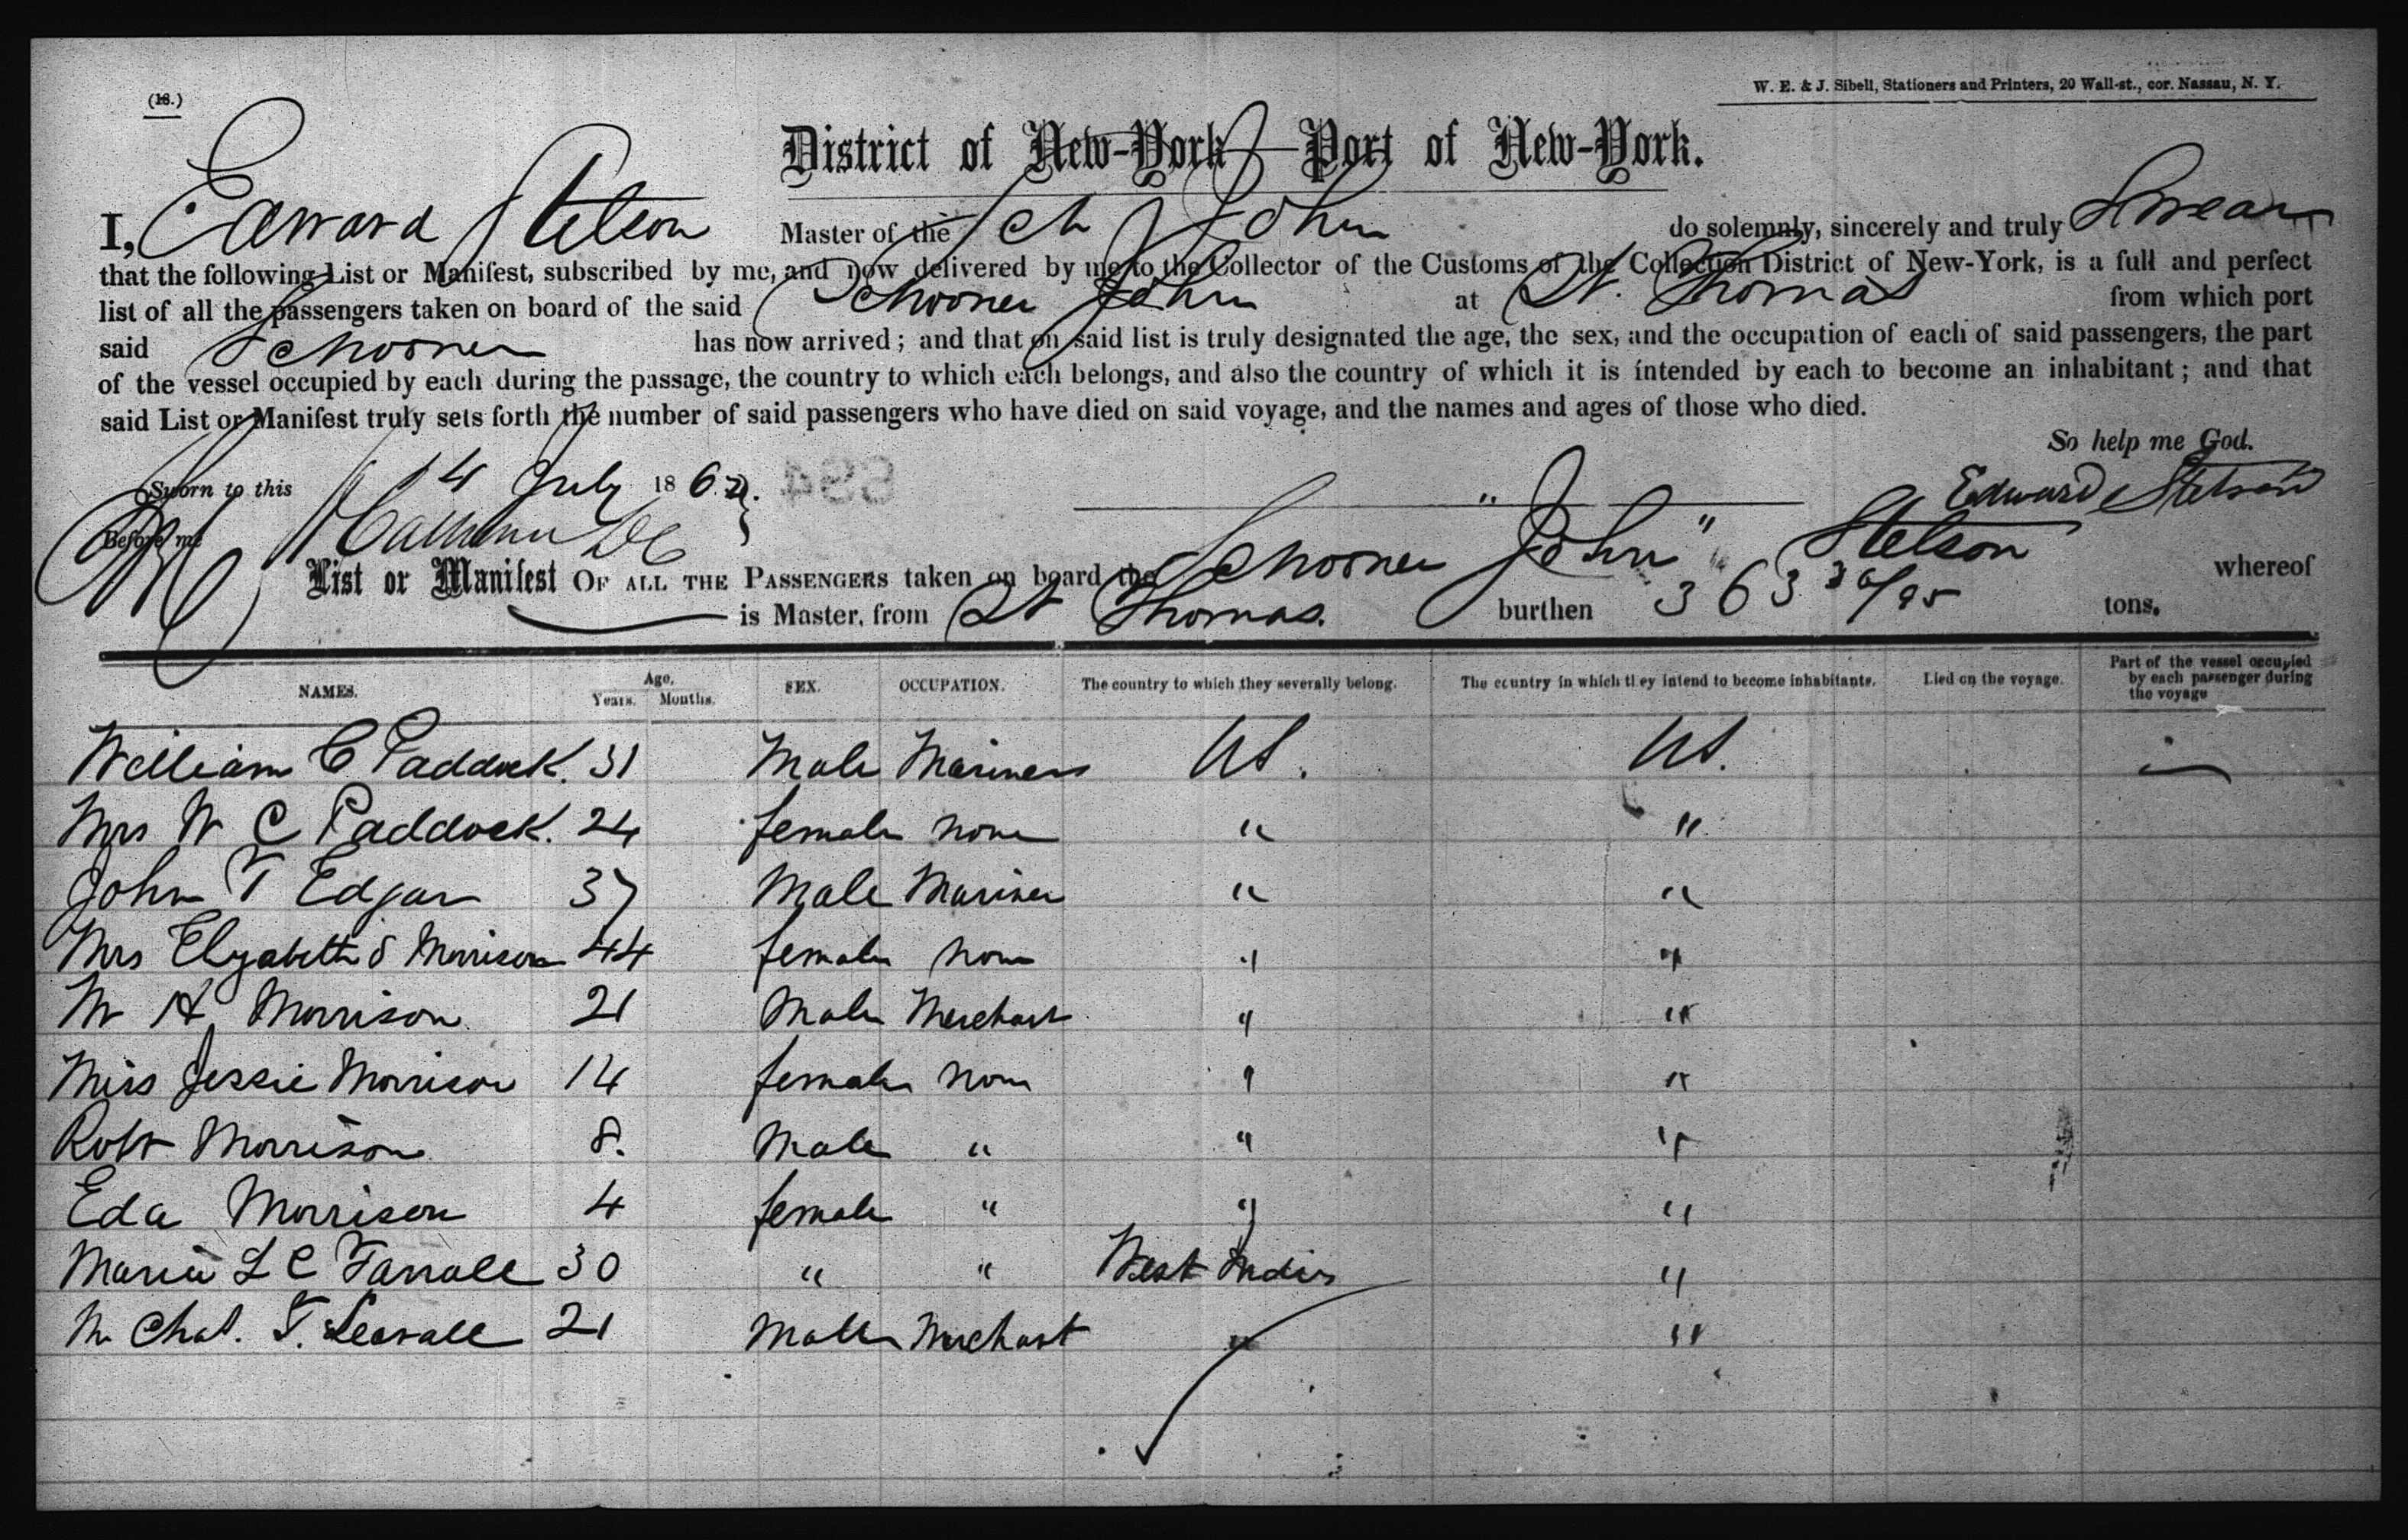 (18.)
W. E. & J. Sibell, Stationers and Printers, 20 Wall-st., cor. Nassau, N. Y.
District of New-York—Port of New-York.
I, Edward Stetson Master of the Sch John do solemnly, sincerely and truly Swear
that the following List or Manifest, subscribed by me, and now delivered by me to the Collector of the Customs of the Collection District of New-York, is a full and perfect
list of all the passengers taken on board of the said Schooner John at St. Thomas from which port
said Schooner has now arrived; and that on said list is truly designated the age, the sex, and the occupation of each of said passengers, the part
of the vessel occupied by each during the passage, the country to which each belongs, and also the country of which it is intended by each to become an inhabitant; and that
said List or Manifest truly sets forth the number of said passengers who have died on said voyage, and the names and ages of those who died.
So help me God.
Sworn to this 14 July 1862. Edward Stetson
Before me
List or Manifest OF ALL THE PASSENGERS taken on board the Schooner "John" Stetson whereof
is Master, from St Thomas. burthen 363 36/95 tons.
NAMES. Age, Years. Months. SEX. OCCUPATION. The country to which they severally belong. The country in which they intend to become inhabitants. Died on the voyage. Part of the vessel occupied by each passenger during the voyage
William C Paddock. 31 Male Mariner US. US.
Mrs W C Paddock. 24 female none " "
John T Edgar 37 Male Mariner " "
Mrs Elyzabeth S Morrison 44 female none " "
W H Morrison 21 Male Merchant " "
Miss Jessie Morrison 14 female none " "
Robt Morrison 8. Male " " "
Eda Morrison 4 female " " "
Maria L C Farrall 30 " " West Indies "
M Chas. T. 21 Male Merchant " "